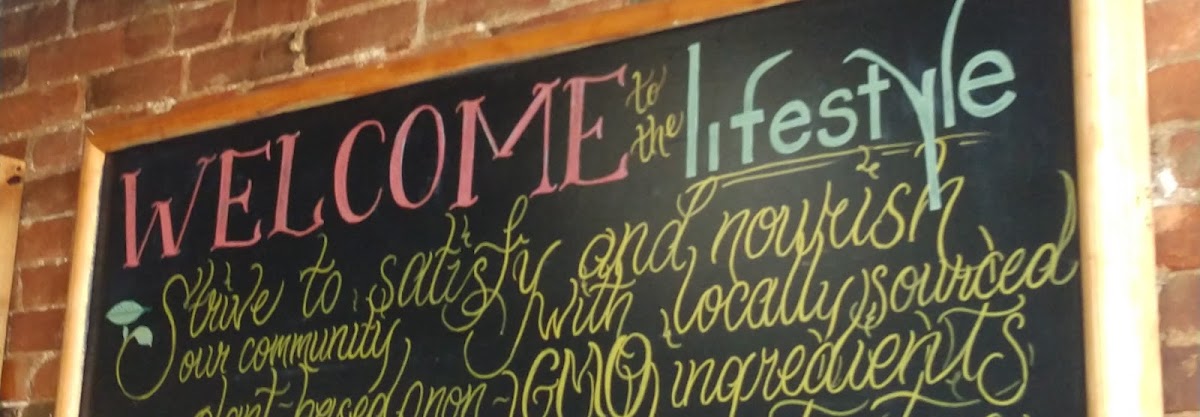 WELCOME to the lifestyle
Strive to satisfy and nourish
our community with locally sourced
plant-based, non-GMO ingredients